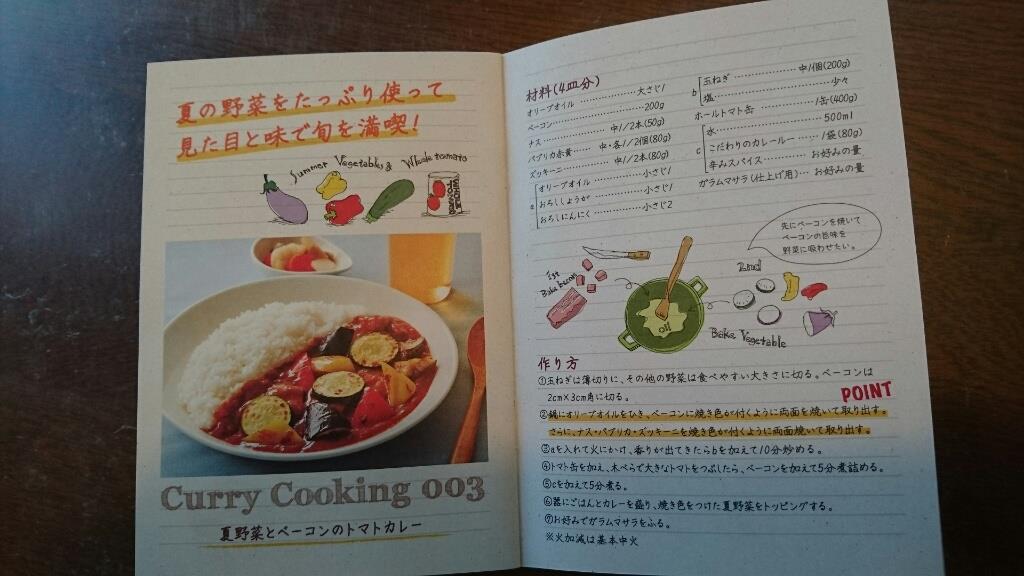 夏の野菜をたっぷり使って
見た目と味で旬を満喫!
Summer Vegetables & Whole tomato
WHOLE TOMATO
Curry Cooking 003
夏野菜とベーコンのトマトカレー
材料(4皿分)
オリーブオイル ………… 大さじ1
ベーコン ………… 200g
ナス ………… 中1/2本(50g)
パプリカ赤黄 …… 中・各1/2個(80g)
ズッキーニ ………… 中1/2本(80g)
a
オリーブオイル ………… 小さじ1
おろししょうが ………… 小さじ1
おろしにんにく ………… 小さじ2
b
玉ねぎ ………… 中1個(200g)
塩 ………… 少々
ホールトマト缶 ………… 1缶(400g)
c
水 ………… 500ml
こだわりのカレールー … 1袋(80g)
辛みスパイス ……… お好みの量
ガラムマサラ(仕上げ用)… お好みの量
先にベーコンを焼いて
ベーコンの旨味を
野菜に吸わせたい。
1st
Bake bacon
oil
2nd
Bake Vegetable
作り方
①玉ねぎは薄切りに、その他の野菜は食べやすい大きさに切る。ベーコンは
2cm×3cm角に切る。
POINT
②鍋にオリーブオイルをひき、ベーコンに焼き色が付くように両面を焼いて取り出す。
さらに、ナス・パプリカ・ズッキーニを焼き色が付くように両面焼いて取り出す。
③aを入れて火にかけ、香りが出てきたらbを加えて10分炒める。
④トマト缶を加え、木べらで大きなトマトをつぶしたら、ベーコンを加えて5分煮詰める。
⑤cを加えて5分煮る。
⑥器にごはんとカレーを盛り、焼き色をつけた夏野菜をトッピングする。
⑦お好みでガラムマサラをふる。
※火加減は基本中火